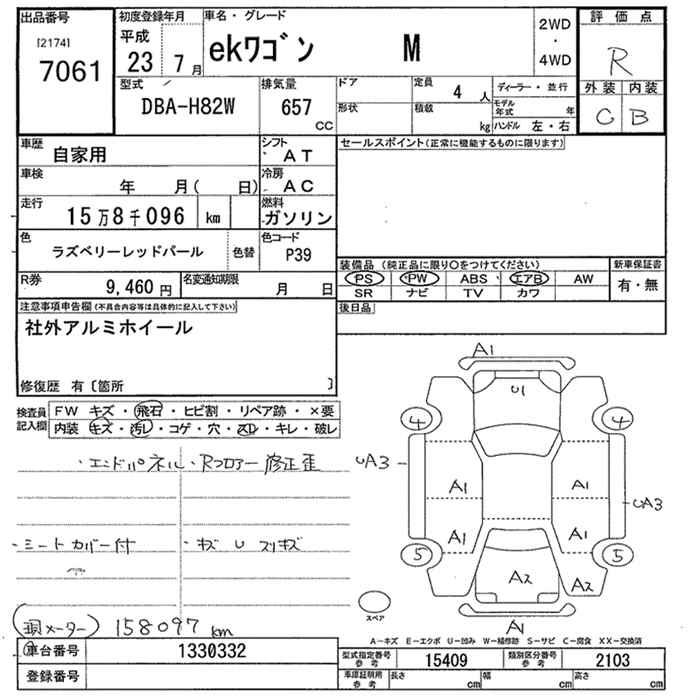 出品番号
[2174]
7061
初度登録年月
平成
23年7月
車名・グレード
ekワゴン M
2WD
・
4WD
評価点
R
外装 内装
C B
型式
DBA-H82W
排気量
657
CC
ドア
形状
定員
4人
積載
kg
ディーラー・並行
モデル年式 年
ハンドル 左・右
車歴
自家用
シフト
AT
セールスポイント(正常に機能するものに限ります)
車検
年 月( 日)
冷房
AC
走行
15万8千096 km
燃料
ガソリン
色
ラズベリーレッドパール
色替
色コード
P39
装備品 (純正品に限り○をつけてください)
PS PW ABS エアB AW
SR ナビ TV カワ
新車保証書
有・無
R券
9,460円
名変通知期限
月 日
後日品
注意事項申告欄(不具合内容等は具体的に記入して下さい)
社外アルミホイール
修復歴 有〔箇所 〕
検査員記入欄
FW キズ・飛石・ヒビ割・リペア跡・×要
内装 キズ・汚レ・コゲ・穴・スレ・キレ・破レ
・エンドパネル・Rフロアー修正歪
・シートカバー付
・キズ U スリキズ
(現メーター) 158097 km
A1
U1
4 4
UA3
A1 A1
UA3
A1 A1
5 5
A2 A2
A1
スペア
A-キズ E-エクボ U-凹み W-補修跡 S-サビ C-腐食 XX-交換済
車台番号
1330332
型式指定番号
参考
15409
類別区分番号
参考
2103
登録番号
車庫証明用
参考
長さ cm
幅 cm
高さ cm